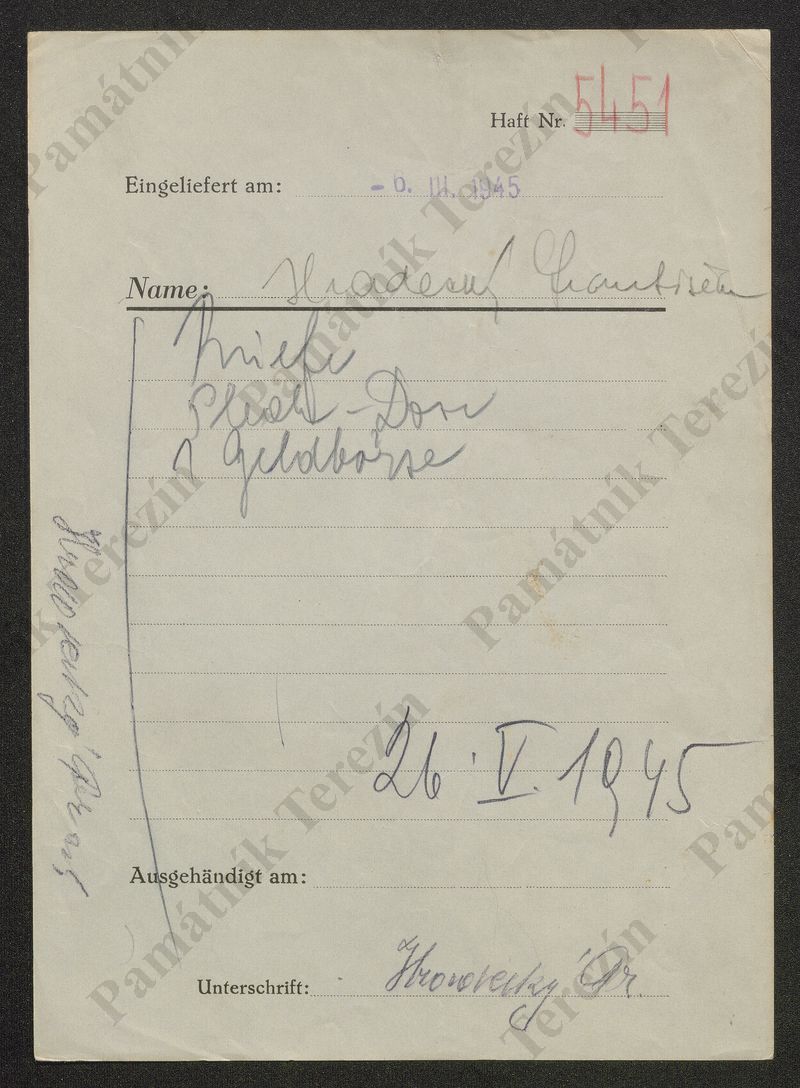 Haft Nr. 5451
Eingeliefert am: - 6. III. 1945
Name: Hradecký František
Briefe
Blech-Dose
1 Geldbörse
26. V. 1945
Ausgehändigt am:
Unterschrift: Hradecký Fr.
Památník Terezín